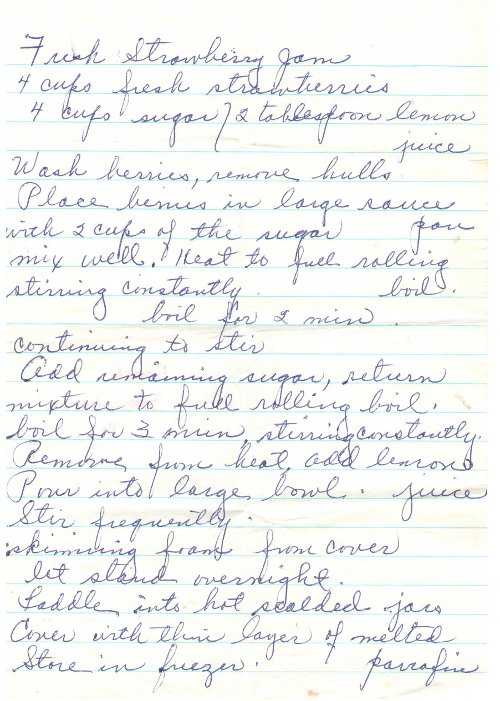 Fresh Strawberry Jam
4 cups fresh strawberries
4 cups sugar / 2 tablespoon lemon
juice
Wash berries, remove hulls
Place berries in large sauce
with 2 cups of the sugar pan
mix well. Heat to full rolling
stirring constantly. boil.
boil for 2 min.
continuing to stir
Add remaining sugar, return
mixture to full rolling boil.
boil for 3 min, stirring constantly.
Remove from heat, add lemon
Pour into large bowl. juice
Stir frequently.
skimming foam from cover
let stand overnight.
Laddle into hot scalded jars
Cover with thin layer of melted
Store in freezer. parrafin